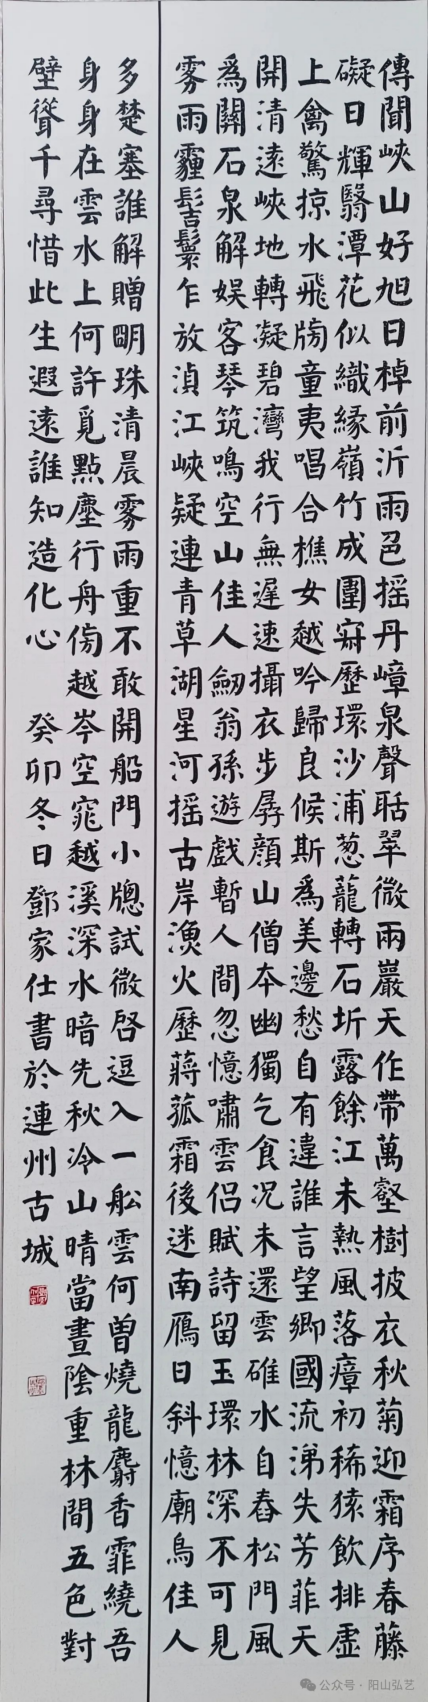 傳聞峽山好旭日棹前沂雨邑摇丹嶂泉聲聒翠微兩巖天作帶萬壑樹披衣秋菊迎霜序春藤
礙日輝翳潭花似織緣嶺竹成圍寂歷環沙浦葱蘢轉石圻露餘江未熱風落瘴初稀猿飲排虛
上禽驚掠水飛牓童夷唱合樵女越吟歸良候斯爲美邊愁自有違誰言望鄉國流涕失芳菲天
開清遠峽地轉凝碧灣我行無遲速攝衣步孱顏山僧本幽獨乞食況未還雲碓水自舂松門風
爲關石泉解娱客琴筑鳴空山佳人劒翁孫遊戲暫人間忽憶嘯雲侶賦詩留玉環林深不可見
霧雨霾髻鬟乍放湞江峽疑連青草湖星河摇古岸漁火歷蔣菰霜後迷南鴈日斜憶廟烏佳人
多楚塞誰解贈明珠清晨霧雨重不敢開船門小牕試微啓逗入一舩雲何曾燒龍麝香霏繞吾
身身在雲水上何許覓點塵行舟傍越岑空窕越溪深水暗先秋冷山晴當晝陰重林間五色對
壁聳千尋惜此生遐遠誰知造化心 癸卯冬日鄧家仕書於連州古城
公众号·阳山弘艺